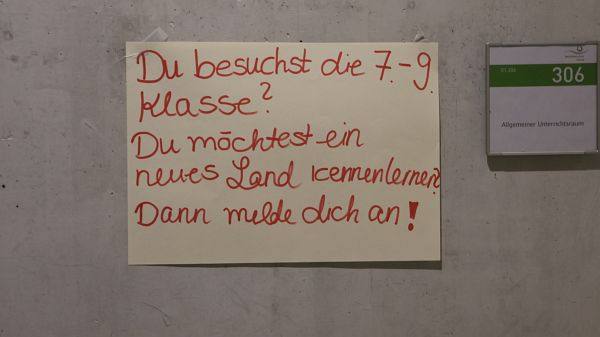 Du besuchst die 7.-9.
Klasse?
Du möchtest ein
neues Land kennenlernen?
Dann melde dich an!
306
Allgemeiner Unterrichtsraum